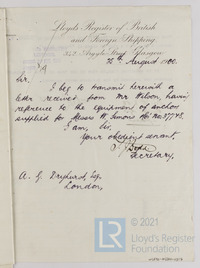 Lloyd's Register of British
and Foreign Shipping.
342 Argyle Street, Glasgow
August 1900.
Sir,
I beg to transmit herewith a
letter received from Mr Wilson, having
reference to the equipment of anchors
supplied for Messrs W. Simons No.
I am, Sir,
Your obedient servant,
Secretary,
A. G. Dryhurst, Esq.
London,
© 2021
LR
Lloyd's Register
Foundation